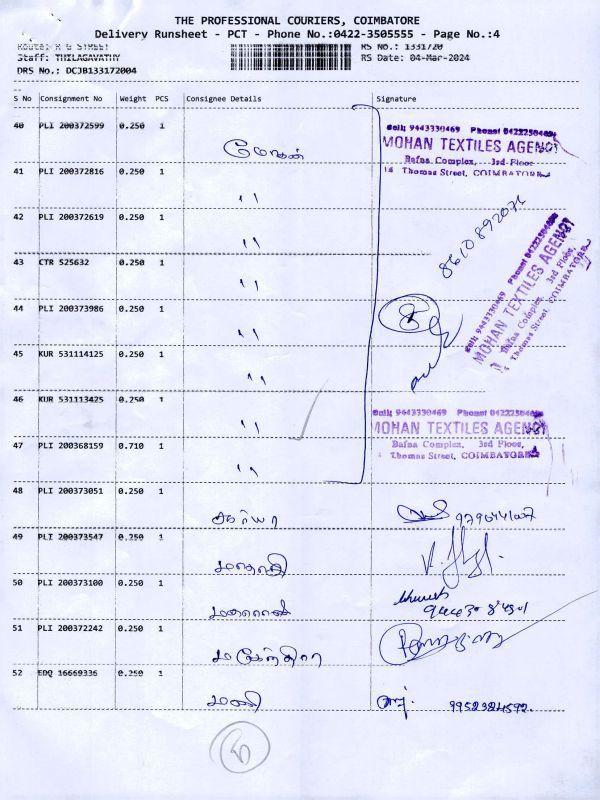 THE PROFESSIONAL COURIERS, COIMBATORE
Delivery Runsheet - PCT - Phone No.:0422-3505555 - Page No.:4
Route: R G STREET RS No.: 1331720
Staff: THILAGAVATHY RS Date: 04-Mar-2024
DRS No.: DCJB133172004
S No Consignment No Weight PCS Consignee Details Signature
40 PLI 200372599 0.250 1 மோகன்
Cell: 9443330469 Phone: 0422250469
MOHAN TEXTILES AGENCY
Bafna Complex, 3rd Floor
Thomas Street, COIMBATORE
41 PLI 200372816 0.250 1 ''
42 PLI 200372619 0.250 1 ''
8610892071
43 CTR 525632 0.250 1 ''
Cell: 9443330469 Phone:
MOHAN TEXTILES AGENCY
Bafna Complex, 3rd Floor,
Thomas Street, COIMBATORE
44 PLI 200373986 0.250 1 ''
8
45 KUR 531114125 0.250 1 ''
46 KUR 531113425 0.250 1 ''
Cell: 9443330469 Phone:
MOHAN TEXTILES AGENCY
Bafna Complex, 3rd Floor,
Thomas Street, COIMBATORE
47 PLI 200368159 0.710 1 ''
48 PLI 200373051 0.250 1
49 PLI 200373547 0.250 1
50 PLI 200373100 0.250 1
51 PLI 200372242 0.250 1 மகேந்திரா
52 EDQ 16669336 0.250 1 மணி 9952324592.